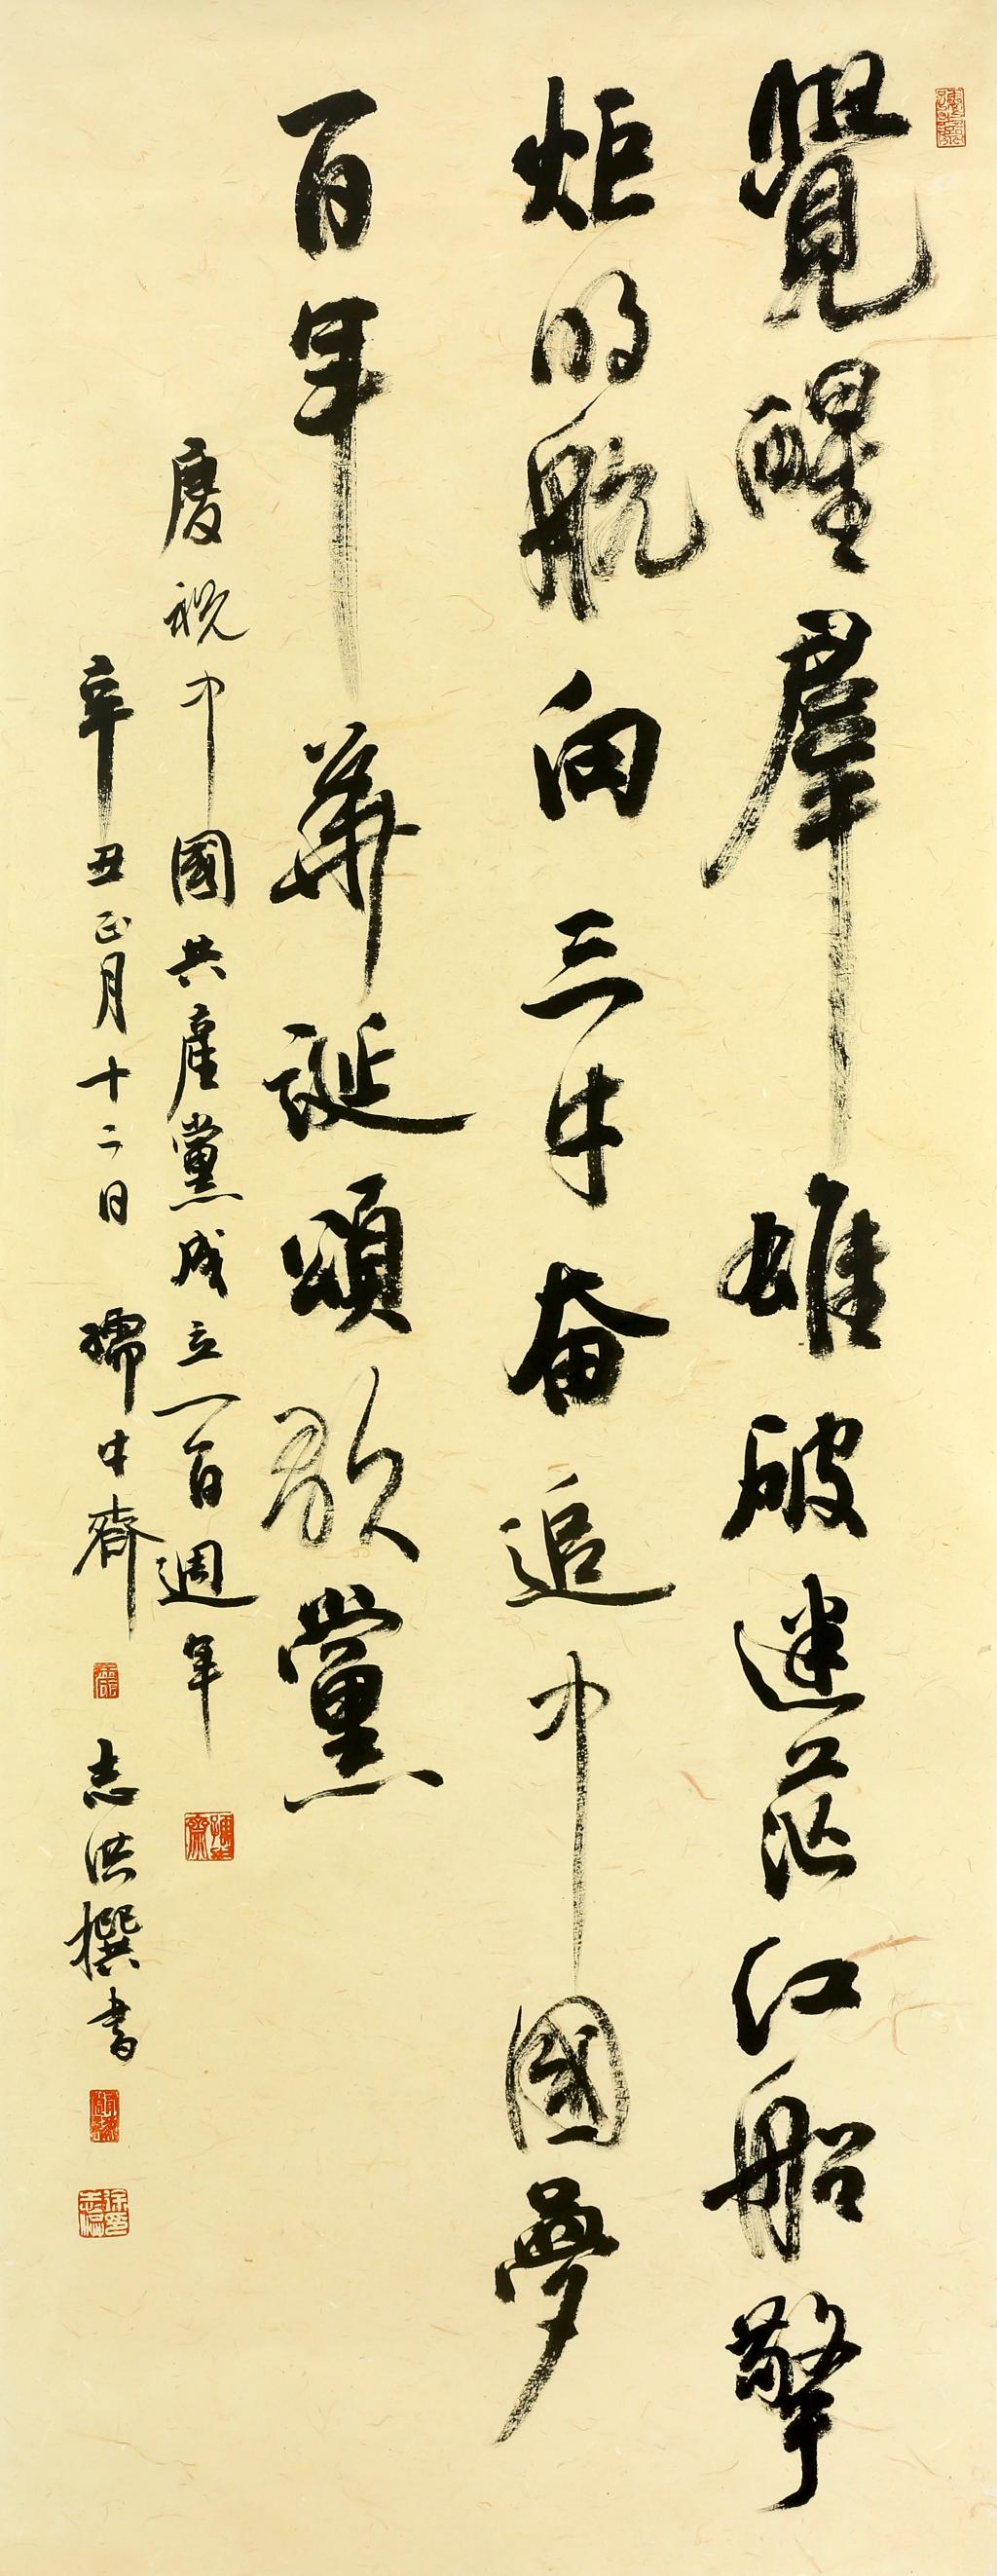 覺醒羣雄破迷茫紅船擎
炬明航向三牛奋追中國夢
百年華誕頌歌黨
慶祝中國共產黨成立一百週年
辛丑正月十二日孺牛齋志洪撰書